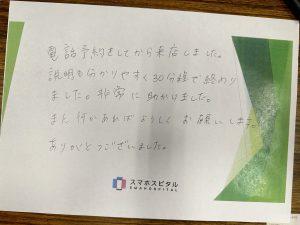 電話予約をしてから来店しました。
説明も分かりやすく30分程で終わり
ました。非常に助かりました。
また何かあればよろしくお願いします。
ありがとうございました。
スマホスピタル
SMAHOSPITAL